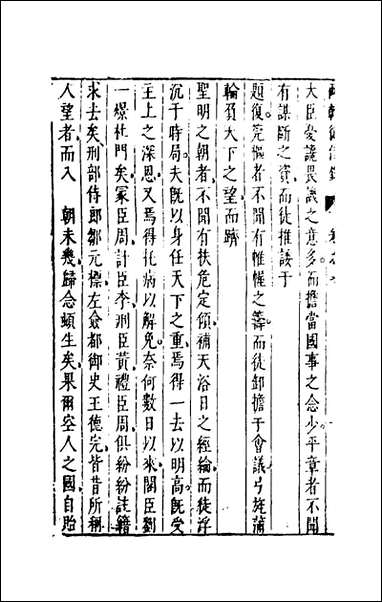 兩朝從信錄
大臣憂讒畏譏之意多而擔當國事之念少平章者不聞
有謀斷之資而徒推諉于
題復筦樞者不聞有帷幄之籌而徒卸擔于會議弓旌蒲
輪負天下之望而躋
聖明之朝者不聞有扶危定傾補天浴日之經綸而徒浮
沉于時局夫既以身任天下之重焉得一去以明高既受
主上之深恩又焉得托病以解免奈何數日以來閣臣劉
一燝杜門矣冢臣周計臣李刑臣黃禮臣周俱紛紛註籍
求去矣刑部侍郎鄒元標左僉都御史王德完皆昔所稱
人望者而入 朝未幾歸念頓生矣果爾空人之國自貽